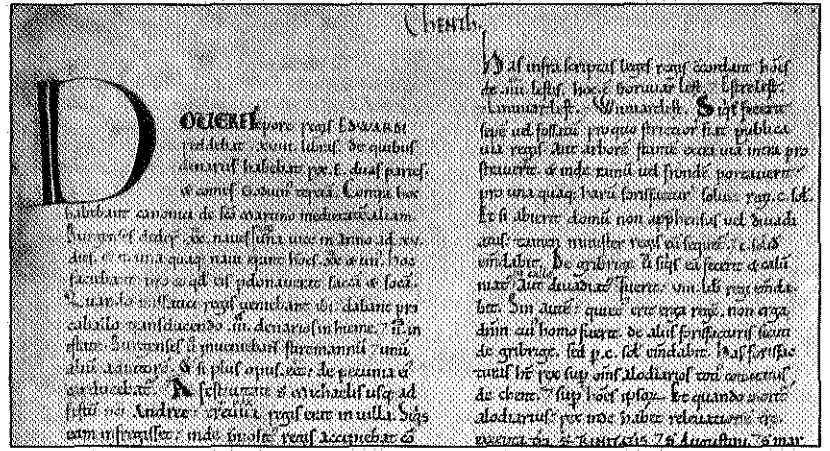 Chenth.
DOVERE tēpore regis EDWARDI
reddebat xviii. libras. de quibus
denariis habebat rex. E. duas partes.
& comes Goduin' terciā. Contra hoc
habebant canonici de sc̄o martino medietatē aliam.
Burgenses deder' xx. naues una uice in anno ad xv.
dies. & in una quaq; naui erant hōes. xx. & un'. hoc
faciebant pro eo qd eis pdonauerat sacā & socā.
Quando missatici regis ueniebant ibi. dabant pro
caballo transducendo .iii. denarios in hieme. 7 ii. in
estate. Burgenses u inueniebant stiremannū 7 unū
aliū adiutorē. & si plus opus eēt: de pecunia ei'
conducebat'. A festiuitate S michaelis usq; ad
festū sci Andree: treuua regis erat in uilla. Siqs
eam infregisset: inde pposit' regis accipiebat cō
Has infra scriptas leges regis cōcordant hōes
de .iiii. lestis. hoc ē Boruuar lest. 7 Estrelest.
7 Limuuarlest. 7 Wiuuardlest. Siqs fecerit
sepē uel fossatū pro quo strictior fiat publica
uia regis. aut arborē stantē extra uiā intra pro
strauerit. & inde ramū uel frondē portauerit
pro una quaq; harū forisfacturaꝝ soluet regi. c. sol.
Et si abierit domū non apphensus uel diuadi
atus: tamen minister regis eū sequet'. 7 c. solid
emdabit. De gribrige. u siqs eā fecerit & calū
niat' aut diuadiat' fuerit: viii. lib regi emda
bit. Sin autē: quiet' erit erga regē. non erga
dn̄m cui' homo fuerit. de aliis forisfacturis sicut
de gribrige. sed p. c. sol emdabit. Has forisfac
turas ht rex sup om̄s alodiarios toti' comitatus
de chent. 7 sup hoēs ipsoꝝ. Et quando morit'
alodiarius: rex inde habet releuationē
S TRINITATIS. 7 S Augustini. 7 S mar